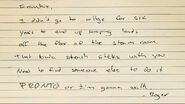 Frankie,
I didn't go to college for six
years to end up mopping loads
off the floor of the steam room.
That kinda stench sticks with you
Need to find someone else to do it
PRONTO or I'm gonna walk
- Roger